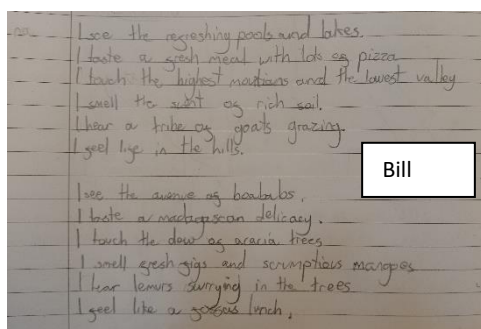 I see the refreshing pools and lakes.
I taste a fresh meal with lots of pizza
I touch the highest moutians and the lowest vally
I smell the sunt of rich soil.
I hear a tribe of goats grazing.
I feel life in the hills.
Bill
I see the avenue of boababs.
I taste a madagascan delicacy.
I touch the dew of acaria trees
I smell fresh figs and scrumptious mangoes
I hear lemurs surrying in the trees
I feel like a fossas lunch.